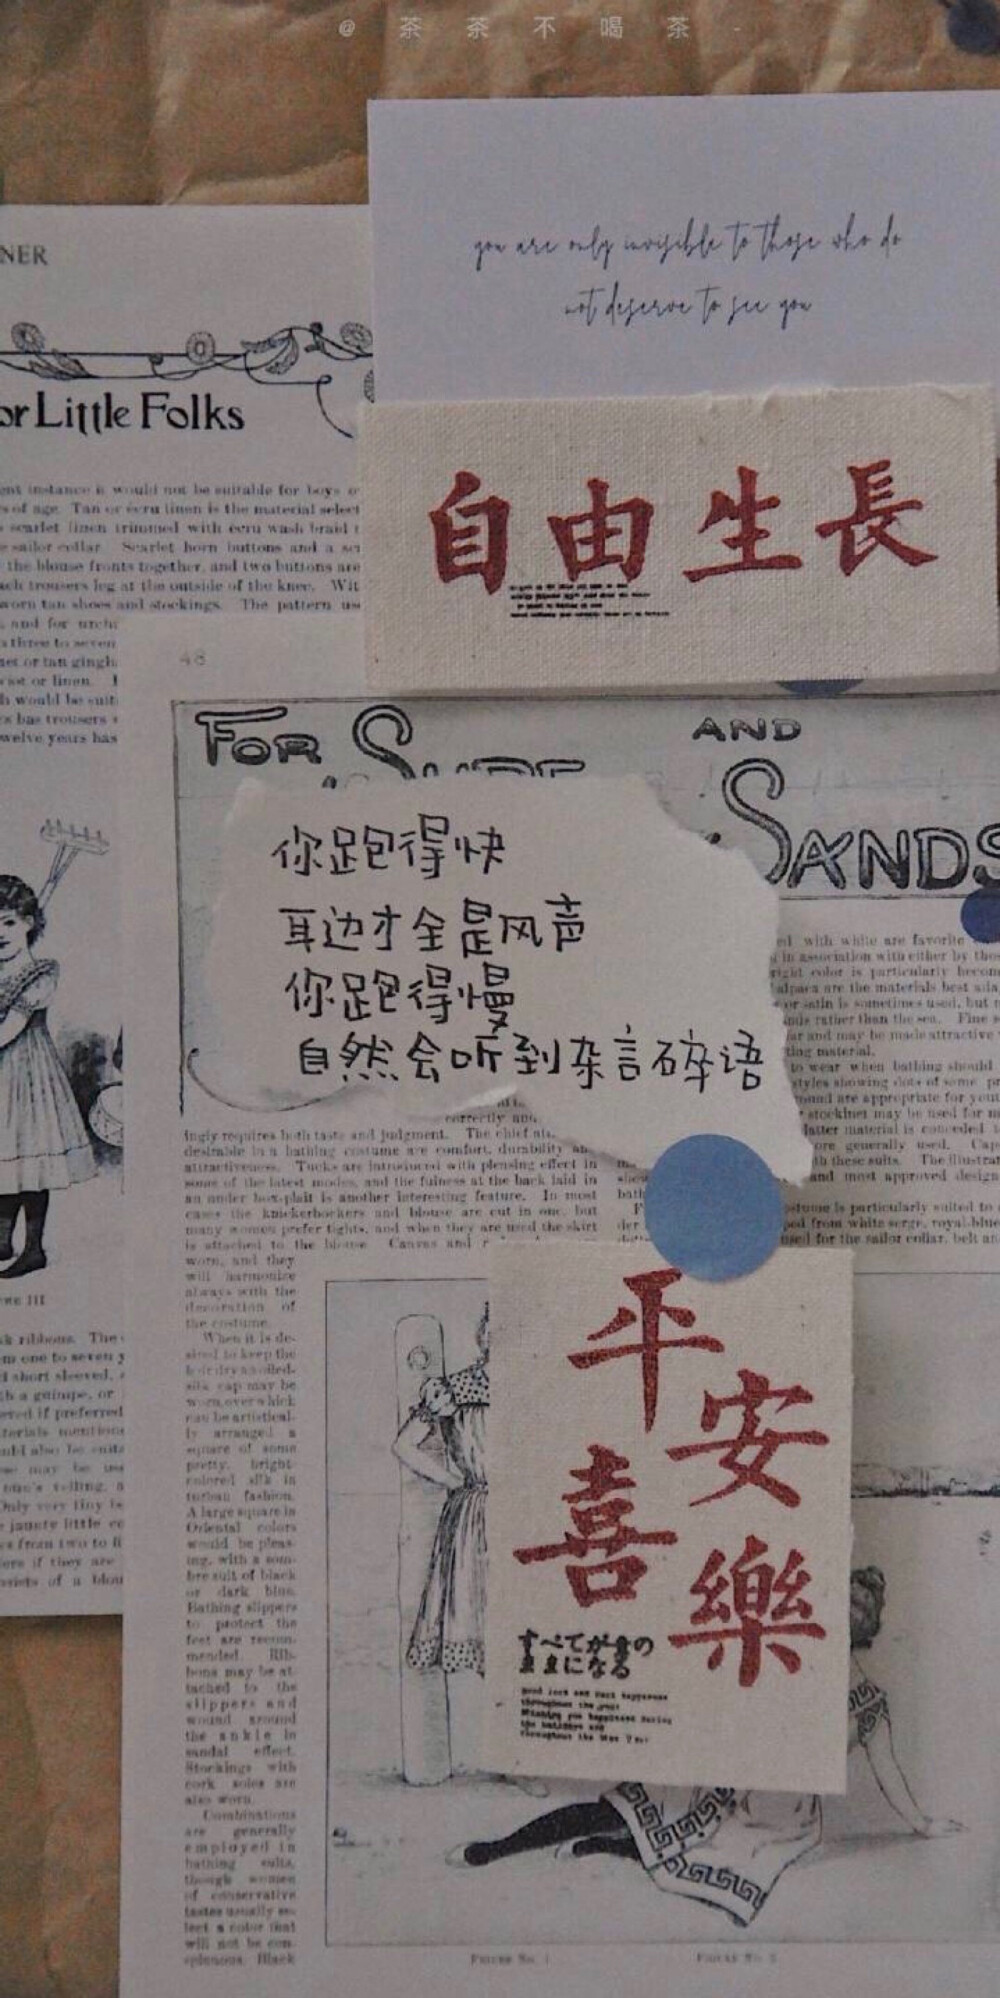 @茶茶不喝茶-
you are only invisible to those who do
not deserve to see you
NER
or Little Folks
自由生長
48
FOR SURF AND
SANDS
你跑得快
耳边才全是风声
你跑得慢
自然会听到杂言碎语
平安
喜樂
すべてが
になる
Good luck and
throughout the year
Wishing you happiness during
the holidays and
throughout the New Year
ent instance it would not be suitable for boys o
s of age. Tan or écru linen is the material select
scarlet linen trimmed with écru wash braid
sailor collar. Scarlet horn buttons and a
the blouse fronts together, and two buttons are
ach trousers leg at the outside of the knee. Wit
worn tan shoes and stockings. The pattern us
three to seven
net or tan gingh
or linen.
h would be suit
has trousers
welve years has
III
k ribbons. The
m one to seven y
d short sleeved,
h a guimpe, or
ered if preferred
terials mention
uld also be suit
may be
Only very tiny
jaunty little
s from two to
ers if they are
of a blou
correctly and
ingly requires both taste and judgment. The chief
desirable in a bathing costume are comfort, durability an
attractiveness. Tucks are introduced with pleasing effect in
some of the latest modes, and the fulness at the back laid in
an under box-plait is another interesting feature. In most
cases the knickerbockers and blouse are cut in one, but
many women prefer tights, and when they are used the skirt
is attached to the blouse. Canvas and
worn, and they
will harmonize
always with the
decoration of
the costume.
When it is de-
sired to keep the
hair dry an oiled-
silk cap may be
worn over which
can be artistical-
ly arranged a
square of some
pretty, bright-
colored silk in
turban fashion.
A large square in
Oriental colors
would be pleas-
ing, with a som-
bre suit of black
or dark blue.
Bathing slippers
to protect the
feet are recom-
mended. Rib-
bons may be at-
tached to the
slippers and
wound around
the ankle in
sandal effect.
Stockings with
cork soles are
also worn.
Combinations
are generally
employed in
bathing suits,
though women
of conservative
tastes usually se-
lect a color that
will not be con-
spicuous. Black
with white are favorite
in association with either by
color is particularly becom
alpaca are the materials best ada
or satin is sometimes used, but
rather than the sea. Fine
and may be made attractive
ting material.
to wear when bathing should
styles showing dots of some
are appropriate for yout
stockinet may be used for
latter material is conceded
ore generally used. Cap
h these suits. The illustrat
and most approved design
ostume is particularly suited to
ped from white serge, royal-blue
used for the sailor collar, belt an
FIGURE No. 1
FIGURE No. 2